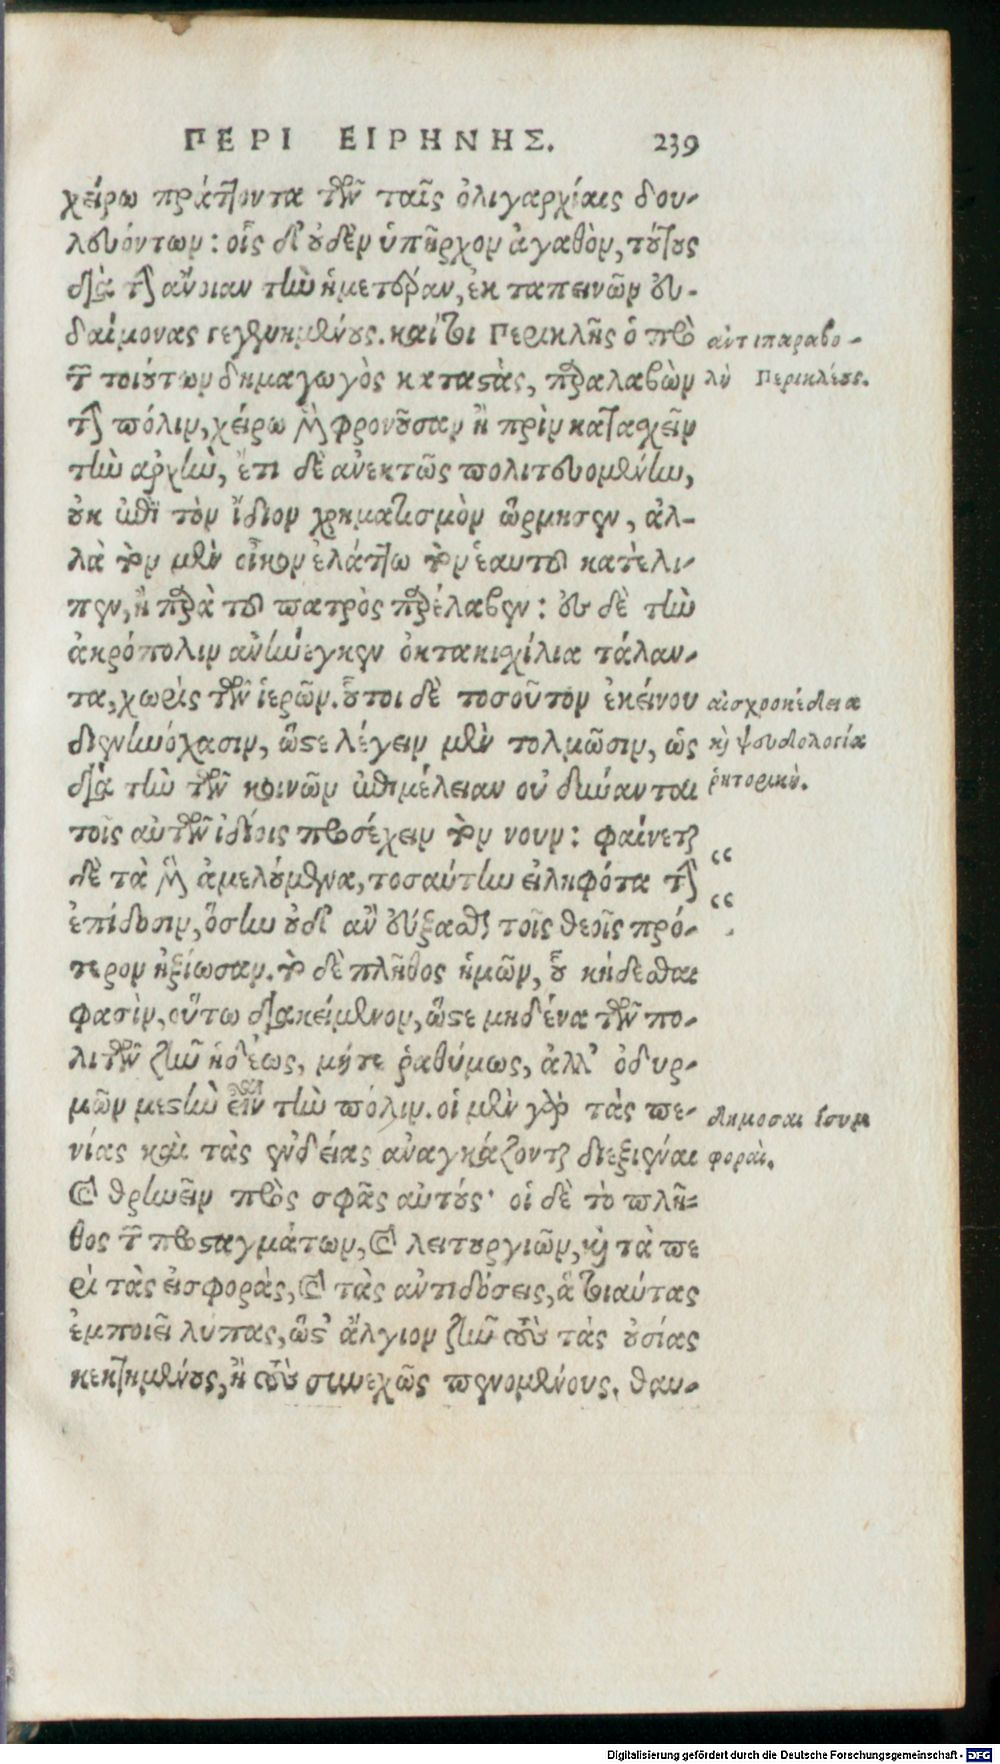 ΠΕΡΙ ΕΙΡΗΝΗΣ. 239
χείρω πράττοντα τῶν ταῖς ὀλιγαρχίαις δου-
λευόντων: οἷς δ' οὐδὲν ὑπῆρχον ἀγαθὸν, τούτους
διὰ τὴν ἄνοιαν τὴν ἡμετέραν, ἐκ ταπεινῶν εὐ-
δαίμονας γεγενημένους. καίτοι Περικλῆς ὁ πρὸ
ἀντιπαραβο-
τῶν τοιούτων δημαγωγὸς καταστὰς, παραλαβὼν
λὴ Περικλέους.
τὴν πόλιν, χείρω μὲν φρονοῦσαν ἢ πρὶν κατασχεῖν
τὴν ἀρχὴν, ἔτι δὲ ἀνεκτῶς πολιτευομένην,
οὐκ ἐπὶ τὸν ἴδιον χρηματισμὸν ὥρμησεν, ἀλ-
λὰ τὸν μὲν οἶκον ἐλάττω τὸν ἑαυτοῦ κατέλι-
πεν, ἢ παρὰ τοῦ πατρὸς παρέλαβεν: εἰς δὲ τὴν
ἀκρόπολιν ἀνήνεγκεν ὀκτακισχίλια τάλαν-
τα, χωρὶς τῶν ἱερῶν. οὗτοι δὲ τοσοῦτον ἐκείνου
αἰσχροκέρδεια
διενηνόχασιν, ὥστε λέγειν μὲν τολμῶσιν, ὡς
καὶ ψευδολογία
διὰ τὴν τῶν κοινῶν ἐπιμέλειαν οὐ δύνανται
ῥητορικὴ.
τοῖς αὑτῶν ἰδίοις προσέχειν τὸν νουν: φαίνεται
“
δὲ τὰ μὲν ἀμελούμενα, τοσαύτην εἰληφότα τὴν
“
ἐπίδοσιν, ὅσην οὐδ' ἂν εὔξασθαι τοῖς θεοῖς πρό-
τερον ἠξίωσαν. τὸ δὲ πλῆθος ἡμῶν, οὗ κήδεσθαι
φασὶν, οὕτω διακείμενον, ὥστε μηδένα τῶν πο-
λιτῶν ζῆν ἡδέως, μήτε ῥαθύμως, ἀλλ' ὀδυρ-
μῶν μεστὴν εἶναι τὴν πόλιν. οἱ μὲν γὰρ τὰς πε-
δημόσιαι συμ
νίας καὶ τὰς ἐνδείας ἀναγκάζονται διεξιέναι
φοραὶ.
καὶ θρηνεῖν πρὸς σφᾶς αὐτούς· οἱ δὲ τὸ πλῆ-
θος τῶν προσταγμάτων, καὶ λειτουργιῶν, καὶ τὰ πε
ρὶ τὰς εἰσφορὰς, καὶ τὰς ἀντιδόσεις, ἃ τοιαύτας
ἐμποιεῖ λύπας, ὥστ' ἄλγιον ζῆν τοὺς τὰς οὐσίας
κεκτημένους, ἢ τοὺς συνεχῶς πενομένους. θαυ-
Digitalisierung gefördert durch die Deutsche Forschungsgemeinschaft - DFG